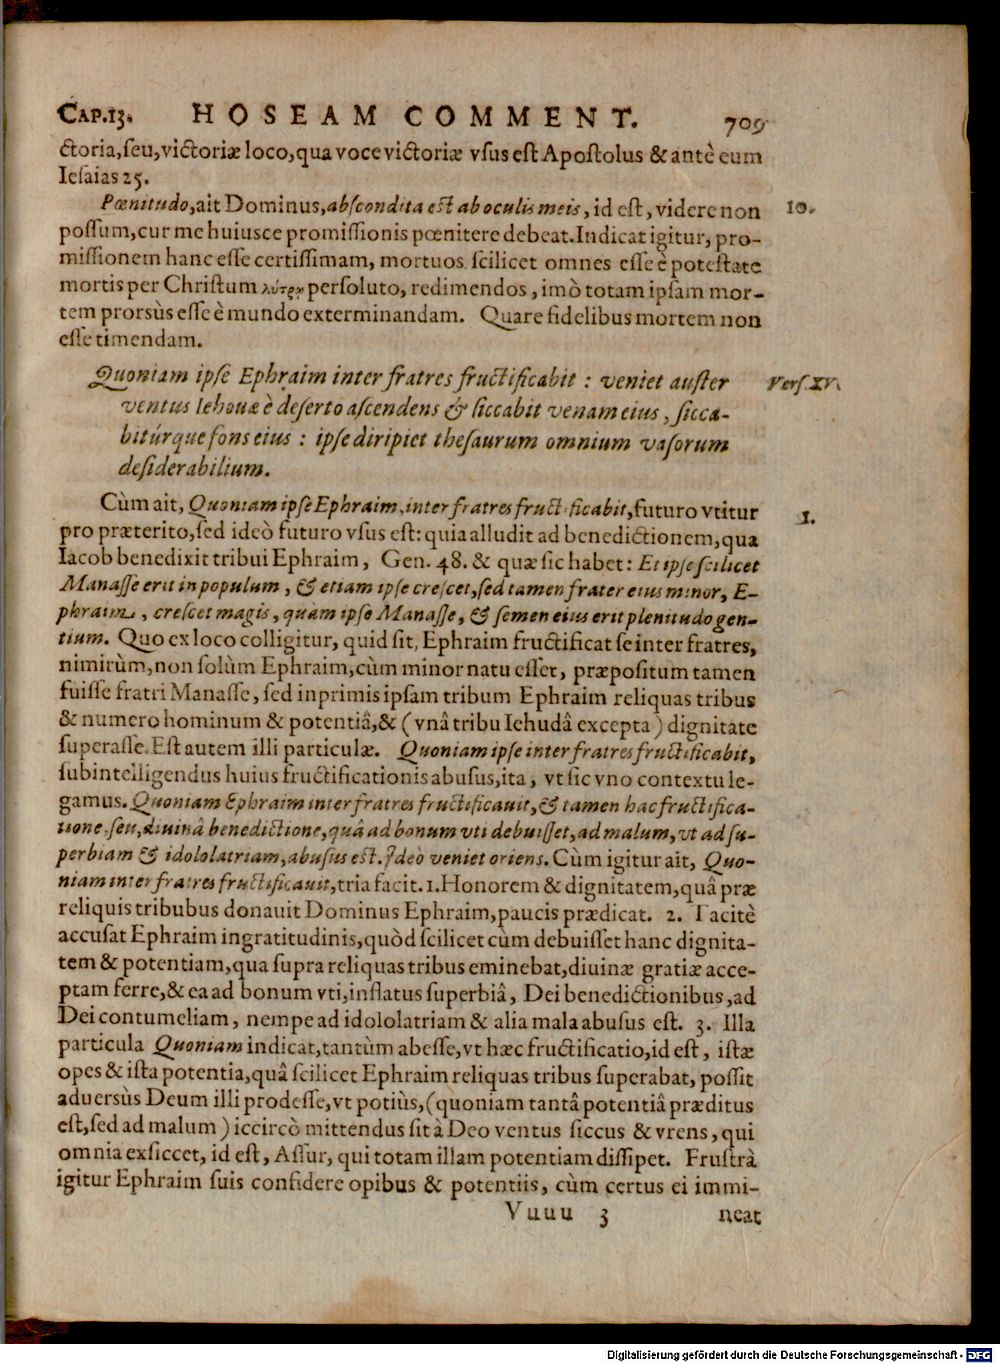 CAP.13. HOSEAM COMMENT. 709
ctoria,seu,victoriæ loco,qua voce victoriæ vsus est Apostolus & antè eum
Iesaias 25.
Pœnitudo,ait Dominus,abscondita est ab oculis meis, id est, videre non 10.
possum,cur me huiusce promissionis pœnitere debeat.Indicat igitur, pro-
missionem hanc esse certissimam, mortuos scilicet omnes esse è potestate
mortis per Christum λύτρῳ persoluto, redimendos, imò totam ipsam mor-
tem prorsùs esse è mundo exterminandam. Quare fidelibus mortem non
esse timendam.
Quoniam ipse Ephraim inter fratres fructificabit : veniet auster Vers.XV.
ventus Iehouæ è deserto ascendens & siccabit venam eius, sicca-
bitúrque fons eius : ipse diripiet thesaurum omnium vasorum
desiderabilium.
Cùm ait, Quoniam ipse Ephraim inter fratres fructificabit,futuro vtitur 1.
pro præterito,sed ideò futuro vsus est: quia alludit ad benedictionem,qua
Iacob benedixit tribui Ephraim, Gen. 48. & quæ sic habet: Et ipse scilicet
Manasse erit in populum, & etiam ipse crescet,sed tamen frater eius minor, E-
phraim, crescet magis, quàm ipse Manasse, & semen eius erit plenitudo gen-
tium. Quo ex loco colligitur, quid sit, Ephraim fructificat se inter fratres,
nimirùm,non solùm Ephraim,cùm minor natu esset, præpositum tamen
fuisse fratri Manasse, sed inprimis ipsam tribum Ephraim reliquas tribus
& numero hominum & potentiâ,& (vnâ tribu Iehudâ excepta) dignitate
superasse. Est autem illi particulæ. Quoniam ipse inter fratres fructificabit,
subintelligendus huius fructificationis abusus,ita, vt sic vno contextu le-
gamus. Quoniam Ephraim inter fratres fructificauit,& tamen hac fructifica-
tione,seu,diuinâ benedictione,quâ ad bonum vti debuisset,ad malum,vt ad su-
perbiam & idololatriam,abusus est. Ideò veniet oriens. Cùm igitur ait, Quo-
niam inter fratres fructificauit,tria facit. 1.Honorem & dignitatem,quâ præ
reliquis tribubus donauit Dominus Ephraim,paucis prædicat. 2. Tacitè
accusat Ephraim ingratitudinis,quòd scilicet cùm debuisset hanc dignita-
tem & potentiam,qua supra reliquas tribus eminebat,diuinæ gratiæ acce-
ptam ferre,& ea ad bonum vti,inflatus superbiâ, Dei benedictionibus,ad
Dei contumeliam, nempe ad idololatriam & alia mala abusus est. 3. Illa
particula Quoniam indicat,tantùm abesse,vt hæc fructificatio,id est, istæ
opes & ista potentia,quâ scilicet Ephraim reliquas tribus superabat, possit
aduersùs Deum illi prodesse,vt potiùs,(quoniam tantâ potentiâ præditus
est,sed ad malum) iccircò mittendus sit à Deo ventus siccus & vrens, qui
omnia exsiccet, id est, Assur, qui totam illam potentiam dissipet. Frustrà
igitur Ephraim suis confidere opibus & potentiis, cùm certus ei immi-
Vuuu 3 neat
Digitalisierung gefördert durch die Deutsche Forschungsgemeinschaft - DFG